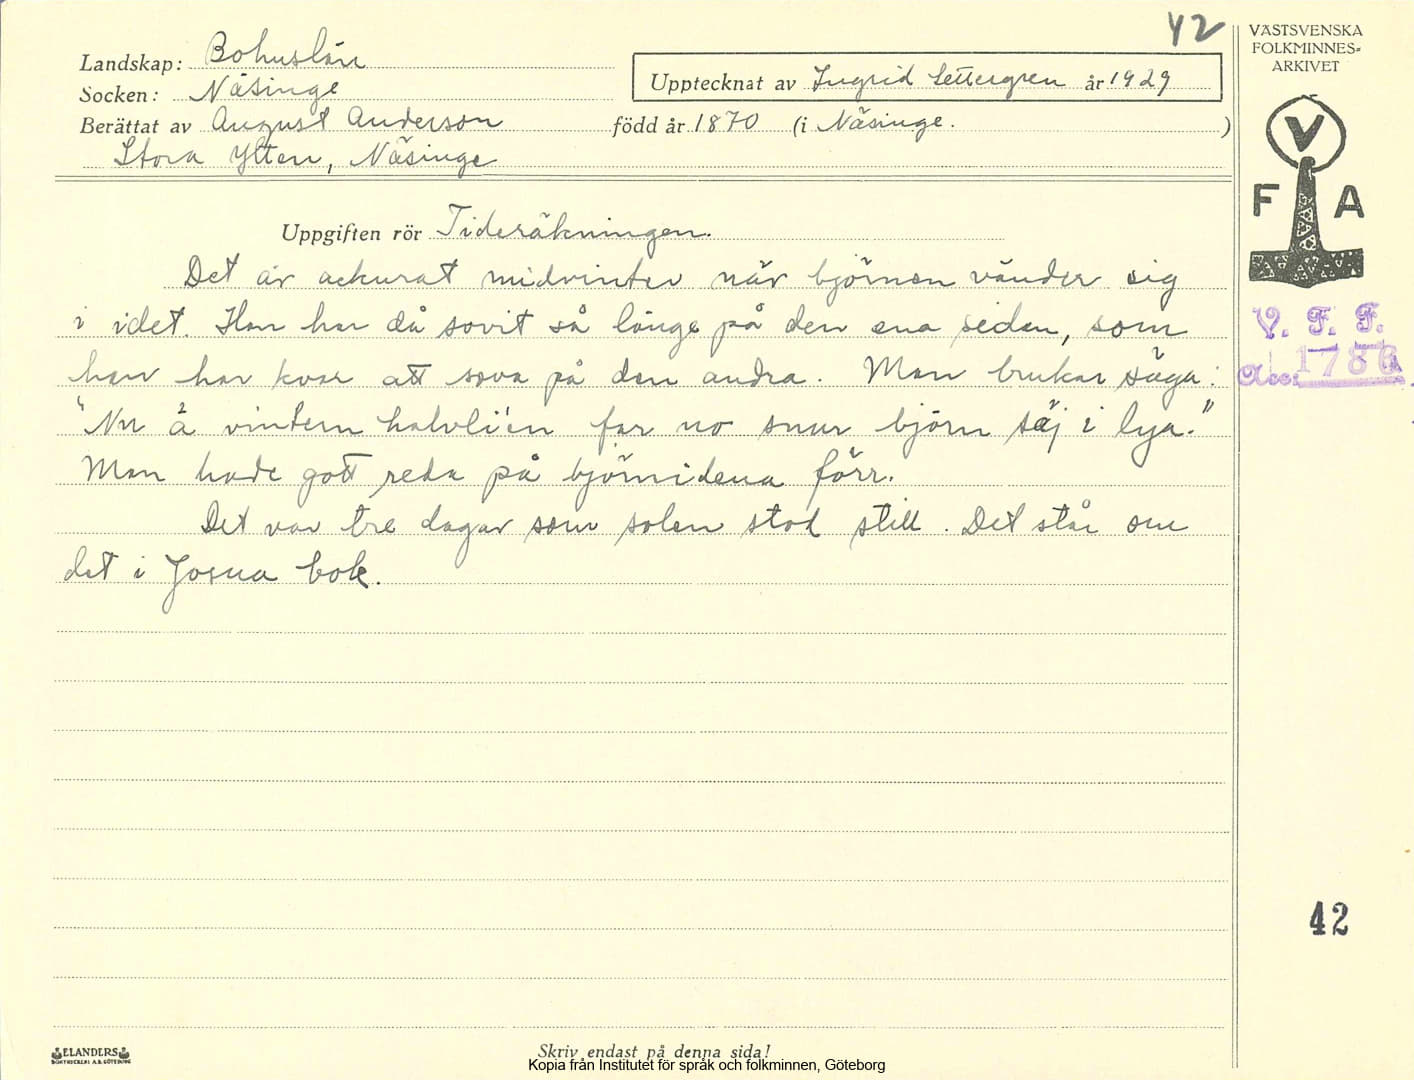 42
VÄSTSVENSKA
FOLKMINNES-
ARKIVET
Landskap: Bohuslän
Socken: Näsinge
Upptecknat av Ingrid Settergren år 1929
Berättat av August Anderson född år 1870 (i Näsinge. )
Stora Ytten, Näsinge
V
F A
Uppgiften rör Tideräkningen.
Det är ackurat midvinter när björnen vänder sig
i idet. Han har då sovit så länge på den ena sidan, som
han har kvar att sova på den andra. Man brukar säga:
"Nu ä vintern halvli'en far no snur björn säj i lya."
Man hade gott reda på björnidena förr.
Det var tre dagar som solen stod still. Det står om
det i Josua bok.
V. F. F.
Acc: 1786
42
ELANDERS
BOKTRYCKERI A.B. GÖTEBORG
Skriv endast på denna sida!
Kopia från Institutet för språk och folkminnen, Göteborg